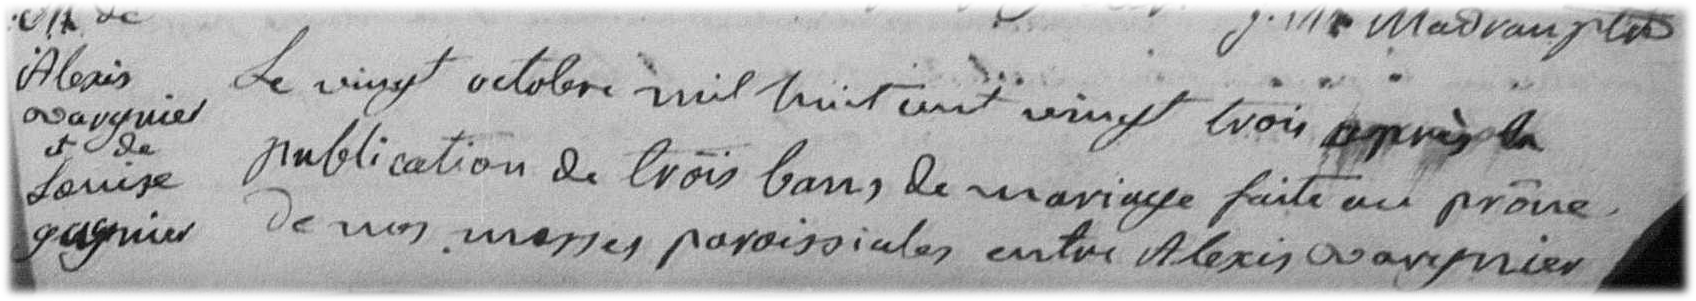 M de
Alexis
vargnier
et de
Louise
gagnier
Le vingt octobre mil huit cent vingt trois après la
publication de trois bans de mariage faite au prône
de nos messes paroissiales entre Alexis vargnier